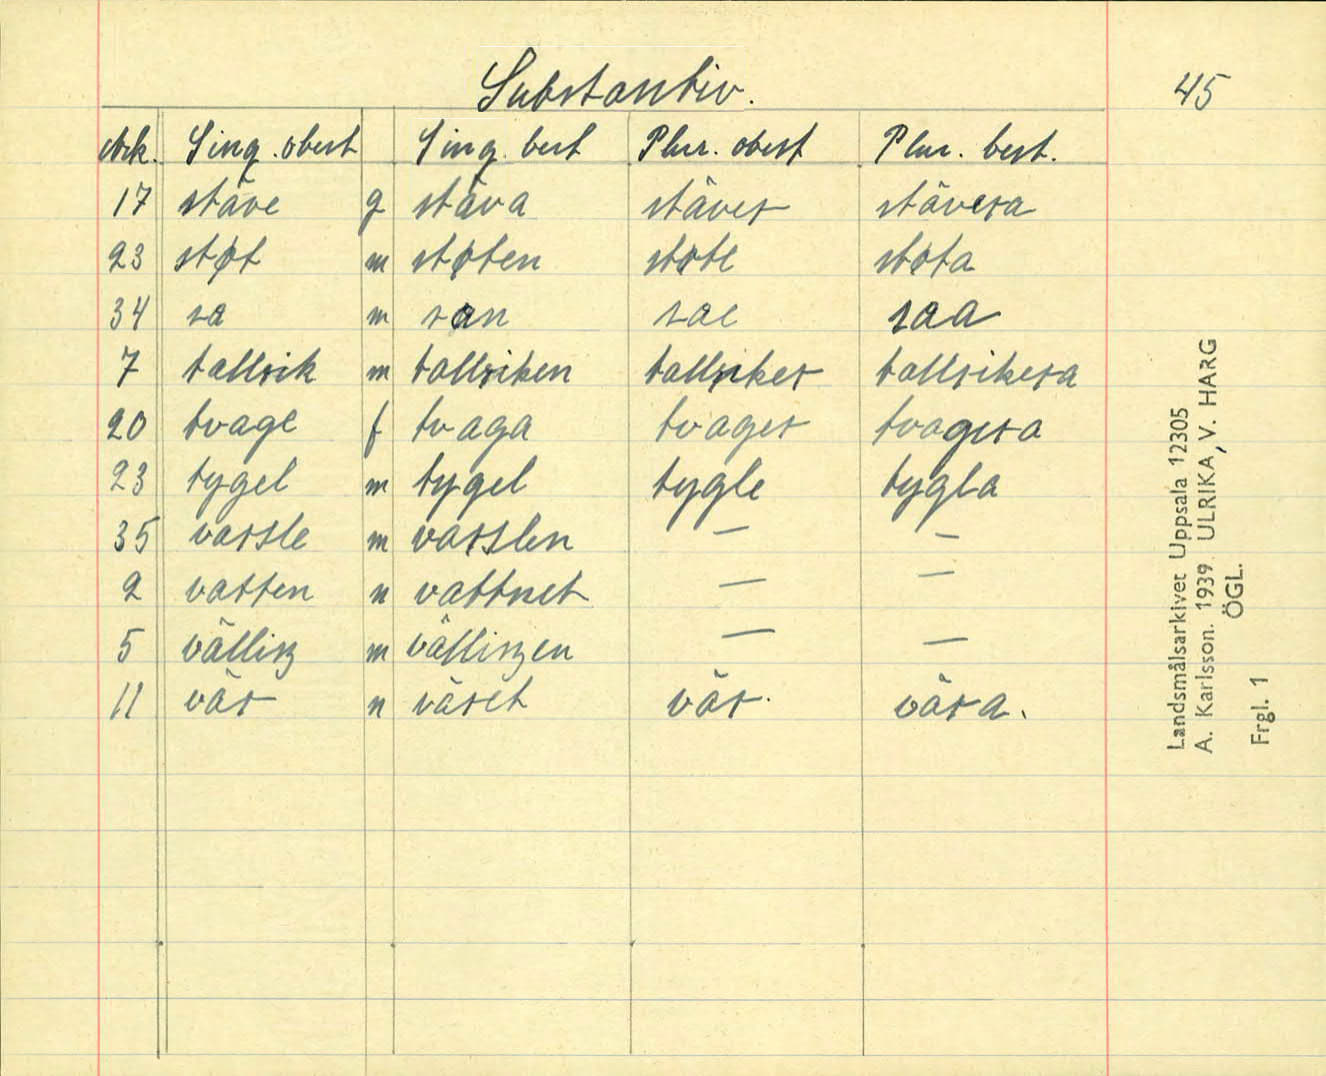 Substantiv.
45
Ark. Sing. obest Sing. best Plur. obest Plur. best.
17 stäve g stäva stäver stävera
23 støt m støten støte støta
34 sa m san sae saa
7 tallrik m tallriken tallriker tallrikera
20 tvage f tvaga tvager tvagera
23 tygel m tygel tygle tygla
35 vassle m vasslen — —
2 vatten n vattnet — —
5 välling m vällingen — —
11 vår n våret vår. våra.
Landsmålsarkivet Uppsala 12305
A. Karlsson. 1939. ULRIKA, V. HARG
ÖGL.
Frgl. 1